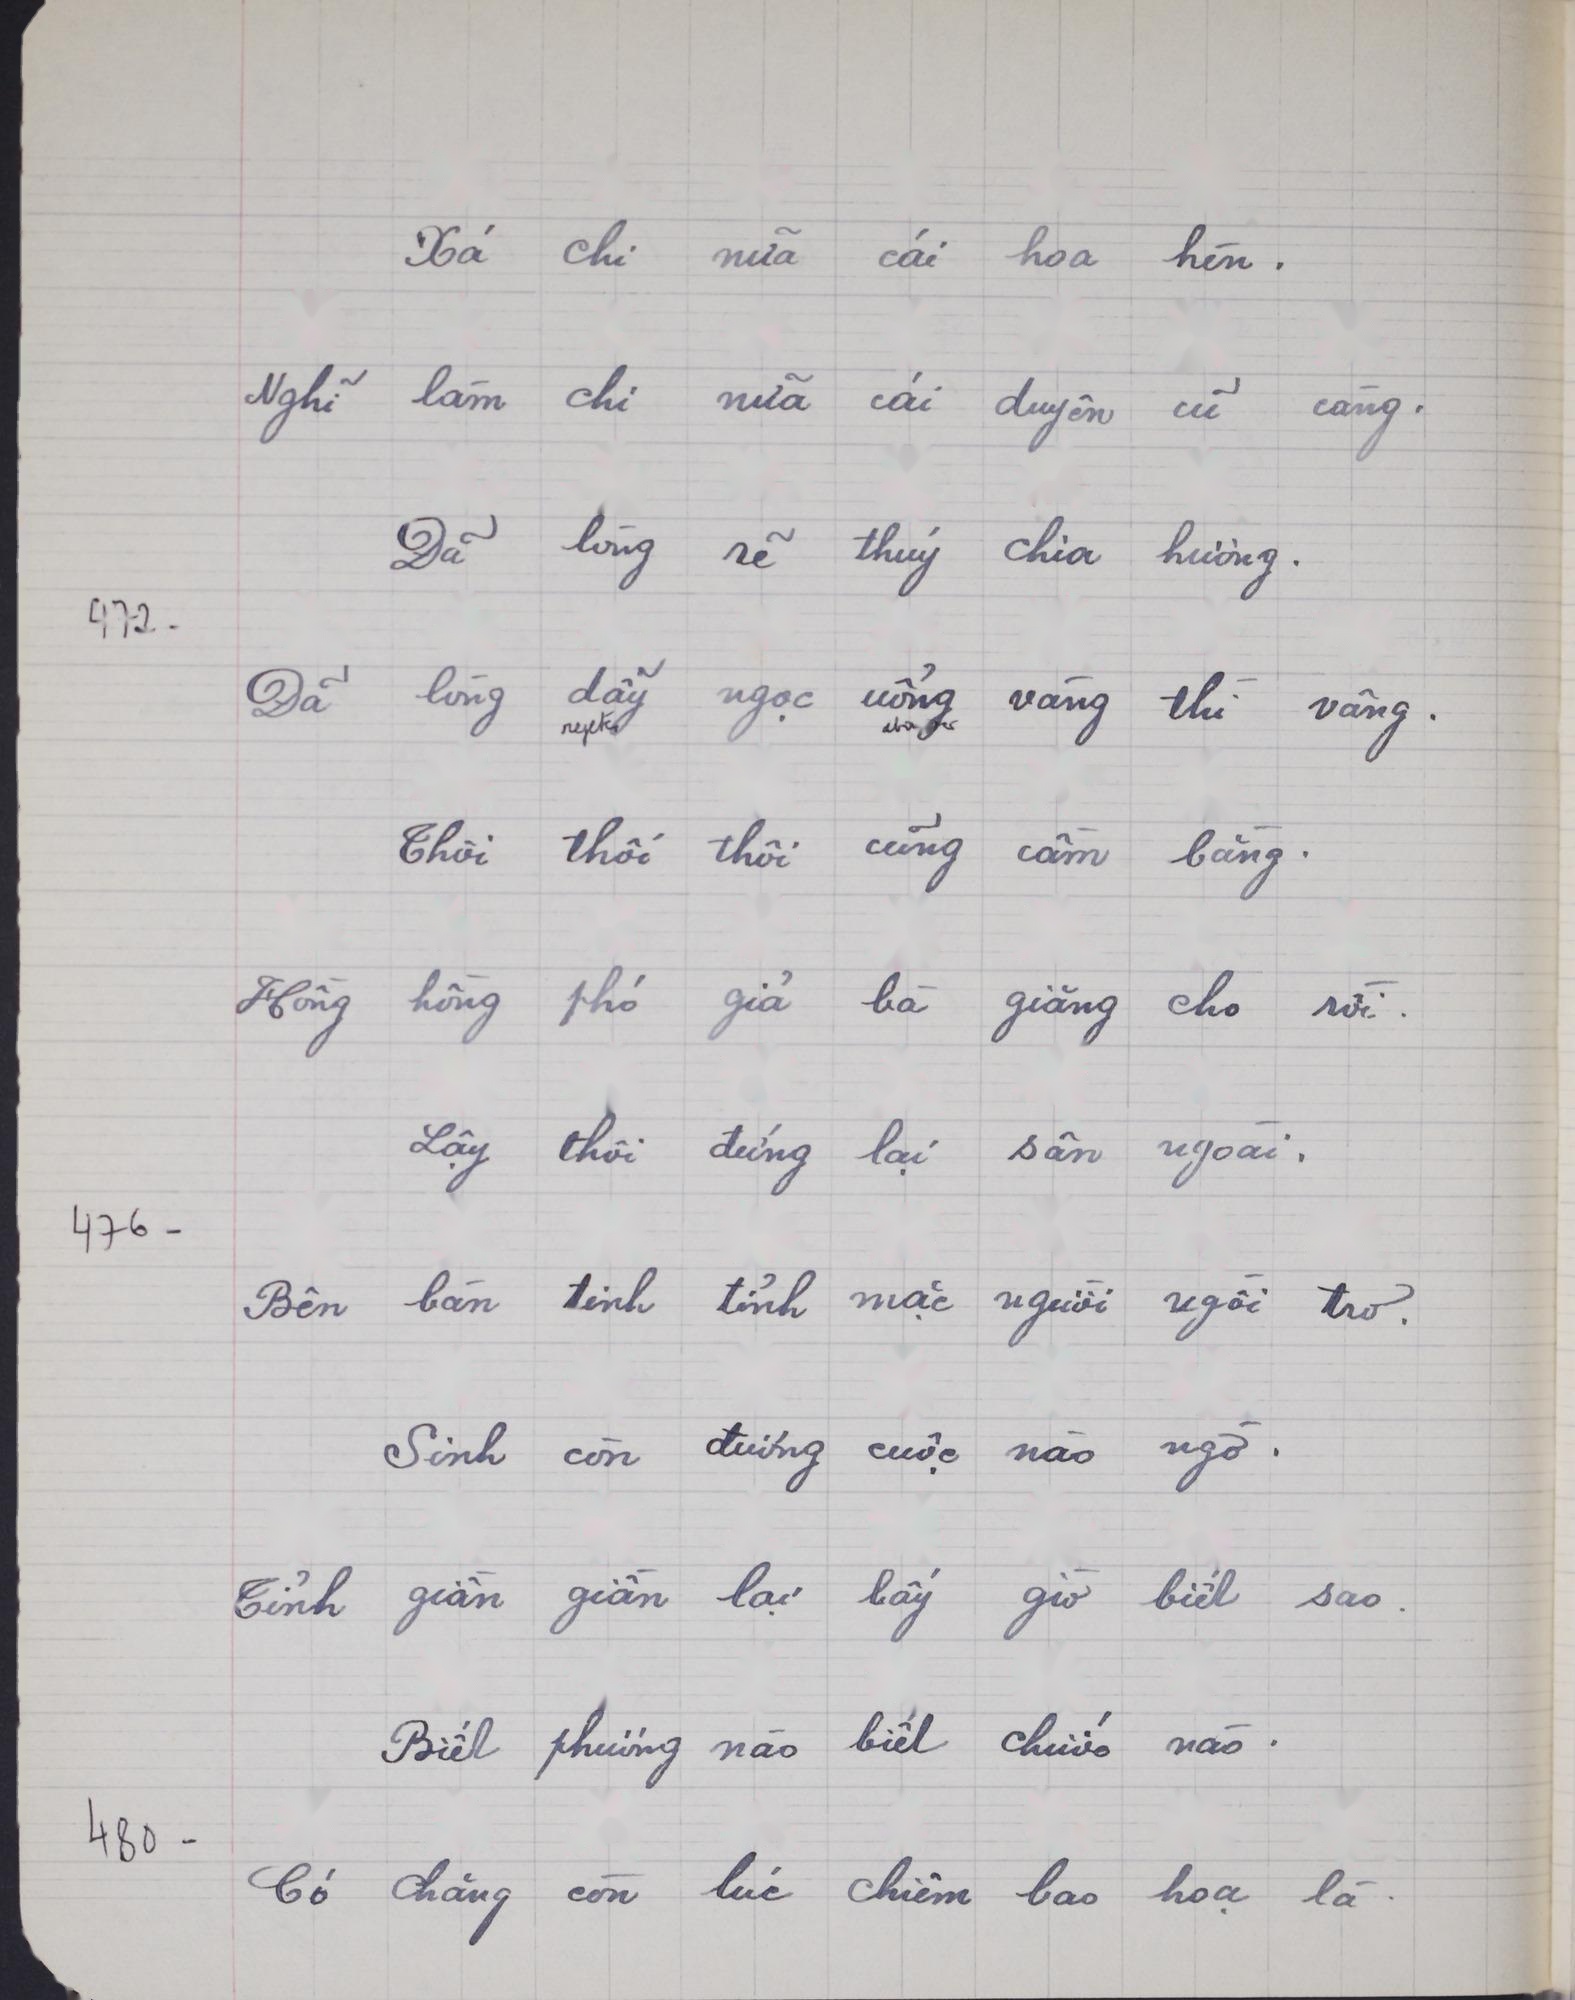 Xá chi nữa cái hoa hèn.
Nghĩ làm chi nữa cái duyên cũ càng.
Dã lòng rẽ thuý chia hương.
472-
Dã lòng dẫy ngọc uổng vàng thì vâng.
Thôi thôi thôi cũng cầm bằng.
Hồng hồng phó giả bà giăng cho rồi.
Lậy thôi đứng lại sân ngoài.
476-
Bên bàn tinh tỉnh mặc người ngồi trơ.
Sinh còn đương cuộc nào ngờ.
Tỉnh giần giần lại bấy giờ biết sao.
Biết phương nào biết chước nào.
480-
Có chăng còn lúc chiêm bao hoạ là.